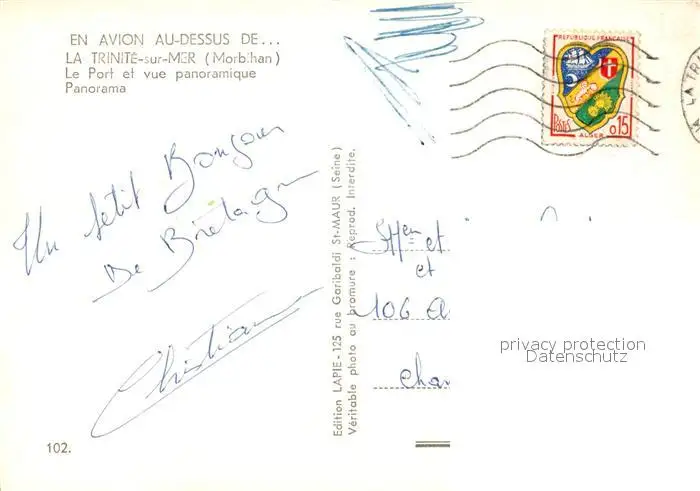 EN AVION AU-DESSUS DE...
LA TRINITÉ-sur-MER (Morbihan)
Le Port et vue panoramique
Panorama
Un petit Bonjour
De Bretagne
Christiane
102.
Edition LAPIE - 125 rue Garibaldi St-MAUR (Seine)
Véritable photo au bromure : Reprod. Interdite.
REPUBLIQUE FRANÇAISE
POSTES
0,15
ALGER
LA TRI
et
et
106 A
Cha
privacy protection
Datenschutz